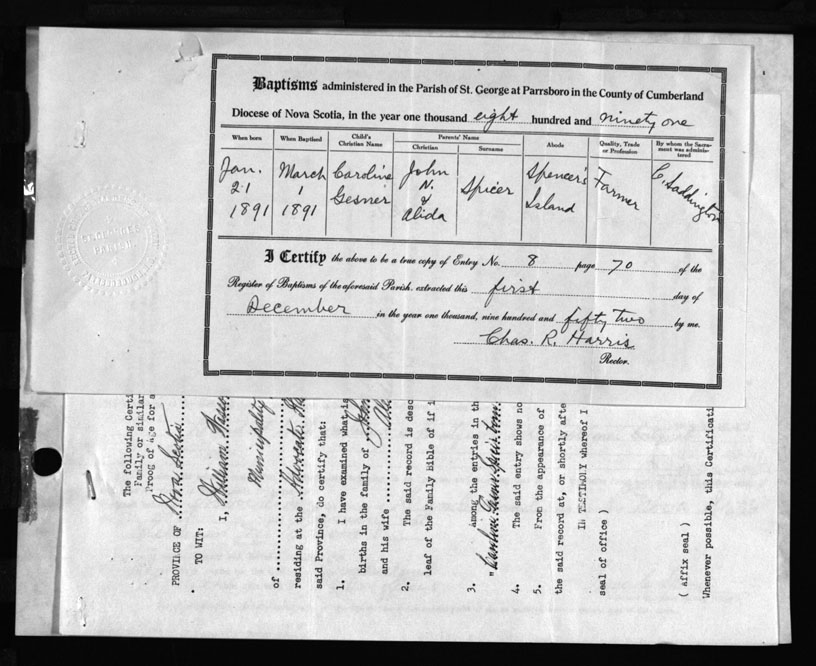 Baptisms administered in the Parish of St. George at Parrsboro in the County of Cumberland
Diocese of Nova Scotia, in the year one thousand eight hundred and ninety one
When born
When Baptised
Child's Christian Name
Parents' Name
Christian
Surname
Abode
Quality, Trade or Profession
By whom the Sacrament was administered
Jan. 21 1891
March 1 1891
Caroline Gesner
John N. & Alida
Spicer
Spencer's Island
Farmer
C. Saddington
I Certify the above to be a true copy of Entry No. 8 page 70 of the
Register of Baptisms of the aforesaid Parish. extracted this first day of
December in the year one thousand, nine hundred and fifty two by me.
Chas. R. Harris
Rector.
ST. GEORGE'S PARISH
The following Certi
Family or similar
Proog of age for a
PROVINCE OF Nova Scotia
TO WIT:
I, William
Municipality
of
residing at the Advocate
said Province, do certify that:
1. I have examined what is
births in the family of John
and his wife
2. The said record is desc
leaf of the Family Bible of if i
3. among the entries in th
"Caroline
4. The said entry shows no
5. From the appearance of
the said record at, or shortly afte
IN TESTIMONY whereof I
seal of office )
( affix seal )
Whenever possible, this Certificati